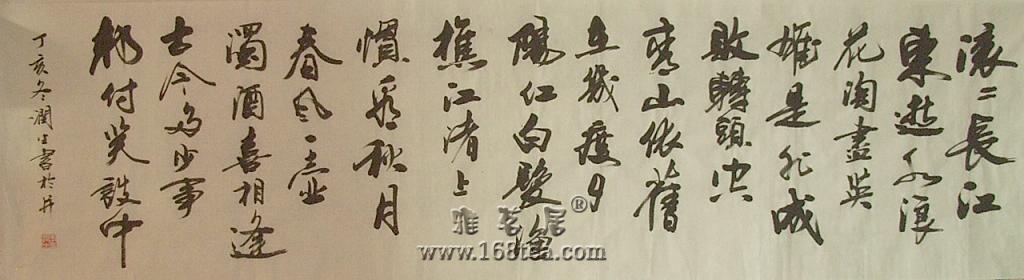 滚二長江
東逝水浪
花淘盡英
雄是非成
敗轉頭空
青山依舊
在幾度夕
陽紅白髮漁
樵江渚上
慣看秋月
春風一壺
濁酒喜相逢
古今多少事
都付笑談中
丁亥冬潤生書於井
雅茗居®
www.168tea.com